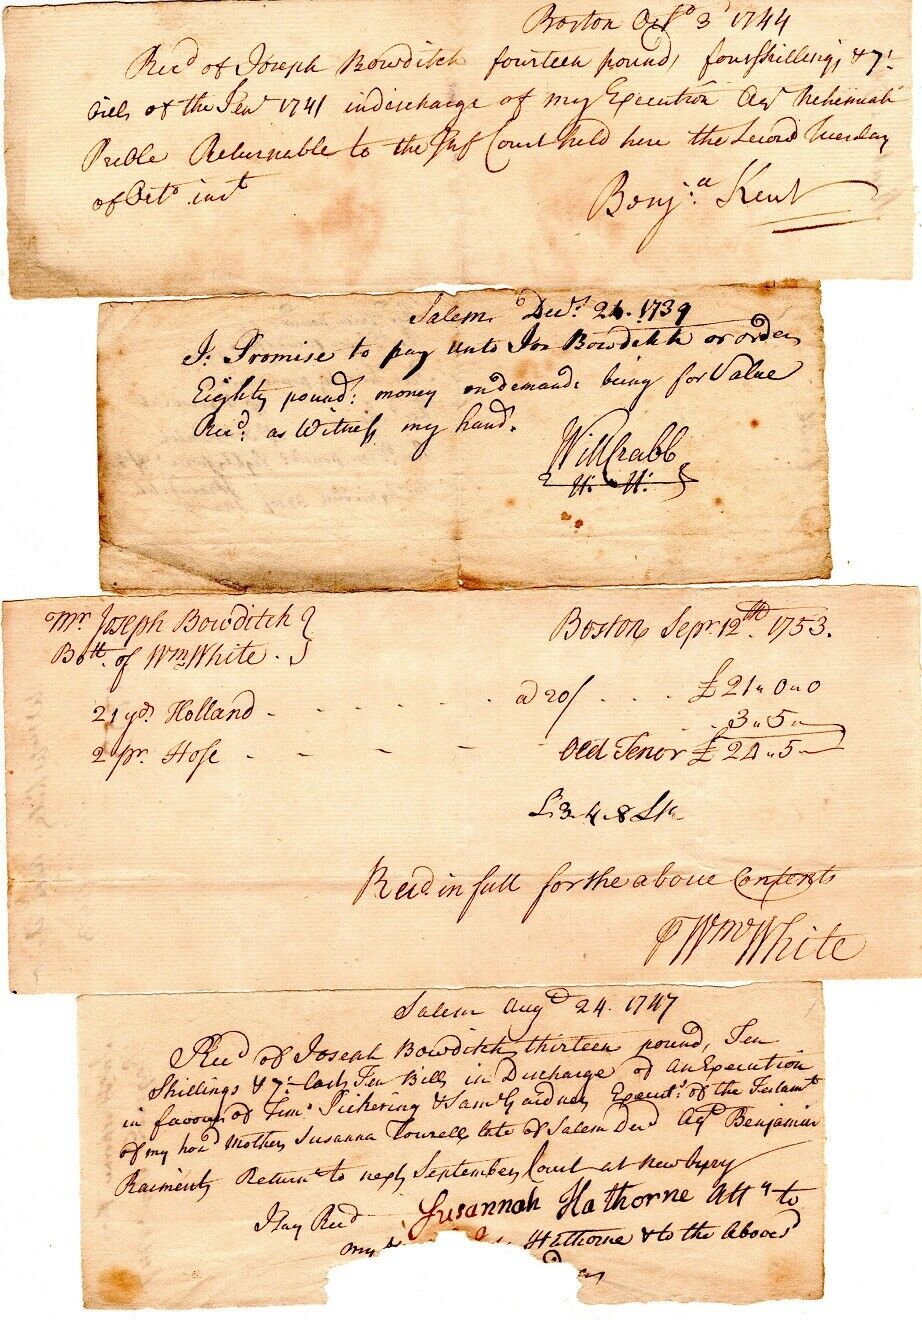 Boston Octo 3d 1744
Recd of Joseph Bowditch fourteen pounds fourshillings & 7d
bills of the Tenr 1741 in discharge of my Execution Agt Nehemiah
Preble Returnable to the Inf Court held here the Second Tuesday
of Octo inst
Benja Kent
Salem Decr 26. 1739
I Promise to pay unto Jos Bowditch or order
Eighty pounds money on demand being for Value
Recd as Witness my hand.
Will Crabb
Mr. Joseph Bowditch
Bott. of Wm White.
Boston Sepr. 12th. 1753.
21 yds Holland - - - - a 20/ - - - £ 21 " 0 " 0
3 " 5 "
2 pr. Hose - - - - Old Tenor £ 24 " 5 -
£3. 4. 8
Recd in full for the above Contents
P Wm White
Salem Augt 24. 1747
Recd of Joseph Bowditch thirteen pounds Ten
Shillings & 7d last Ten Bills in Discharge of an Execution
in favour of Timo Pickering & Saml Gardner Executs of the Testamt
of my hond Mother Susanna Tourell late of Salem Decd Agt Benjamin
Raiment Returne to next September Court at Newbury
I say Recd Susannah Hathorne Atty to
my Hathorne & to the Abovesd